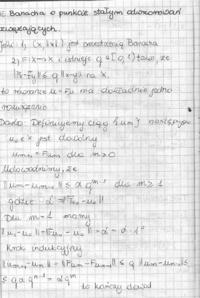 Banacha o punkcie stałym odwzorowań
zwężających.
Jeśli 1) (X, ‖·‖) jest przestrzenią Banacha
2) F: X→X i istnieje q ∈ [0,1) takie, że
‖Fx-Fy‖ ≤ q‖x-y‖ na X,
to równanie u = Fu ma dokładnie jedno
rozwiązanie
Dowód: Definiujemy ciąg {um} następująco
u₀ ∈ X jest dowolny
um+1 = Fum dla m ≥ 0
Udowodnimy, że
‖um - um-1‖ ≤ α q^m-1 dla m ≥ 1
gdzie α = ‖Fu₀ - u₀‖
Dla m=1 mamy
‖u₁-u₀‖ = ‖Fu₀ - u₀‖ = α = α·1
Krok indukcyjny
‖um+1 - um‖ = ‖Fum - Fum-1‖ ≤ q‖um - um-1‖ ≤
≤ q α q^m-1 = α q^m
to kończy dowód